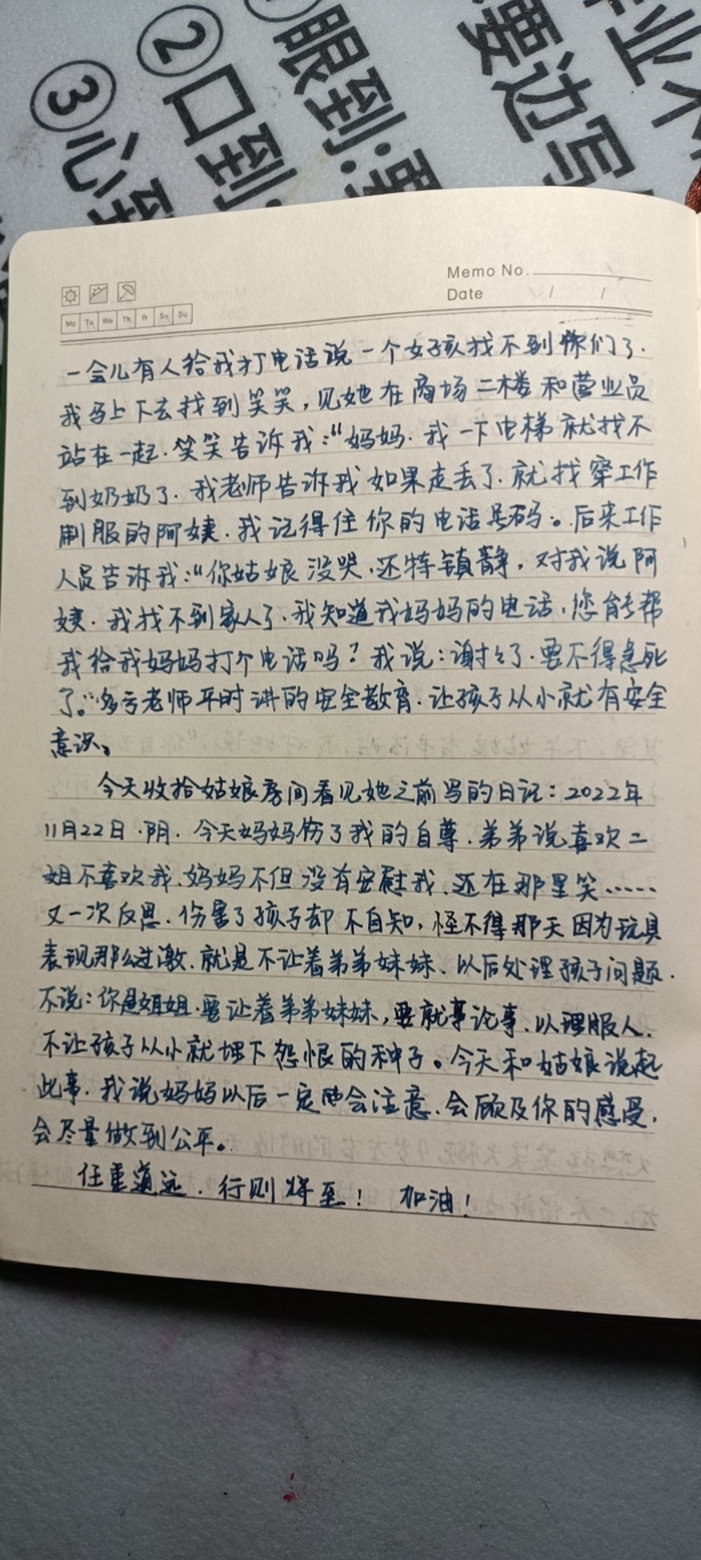 ③心到
②口到:
眼到:要
要边写
业不
Memo No.
Date / /
Mo Tu We Th Fr Sa Su
一会儿有人给我打电话说一个女孩找不到你们了.
我马上下去找到笑笑,见她在商场二楼和营业员
站在一起.笑笑告诉我:“妈妈.我一下电梯就找不
到奶奶了.我老师告诉我如果走丢了.就找穿工作
制服的阿姨.我记得住你的电话号码。后来工作
人员告诉我:“你姑娘没哭.还特镇静,对我说阿
姨.我找不到家人了.我知道我妈妈的电话,您能帮
我给我妈妈打个电话吗?我说:谢谢了.要不得急死
了。”多亏老师平时讲的安全教育.让孩子从小就有安全
意识。
今天收拾姑娘房间看见她之前写的日记:2022年
11月22日.阴.今天妈妈伤了我的自尊.弟弟说喜欢二
姐不喜欢我、妈妈不但没有安慰我.还在那里笑……
又一次反思.伤害了孩子却不自知,怪不得那天因为玩具
表现那么过激.就是不让着弟弟妹妹、以后处理孩子问题.
不说:你是姐姐.要让着弟弟妹妹,要就事论事.以理服人.
不让孩子从小就埋下怨恨的种子。今天和姑娘说起
此事.我说妈妈以后一定会注意.会顾及你的感受,
会尽量做到公平。
任重道远.行则将至! 加油!